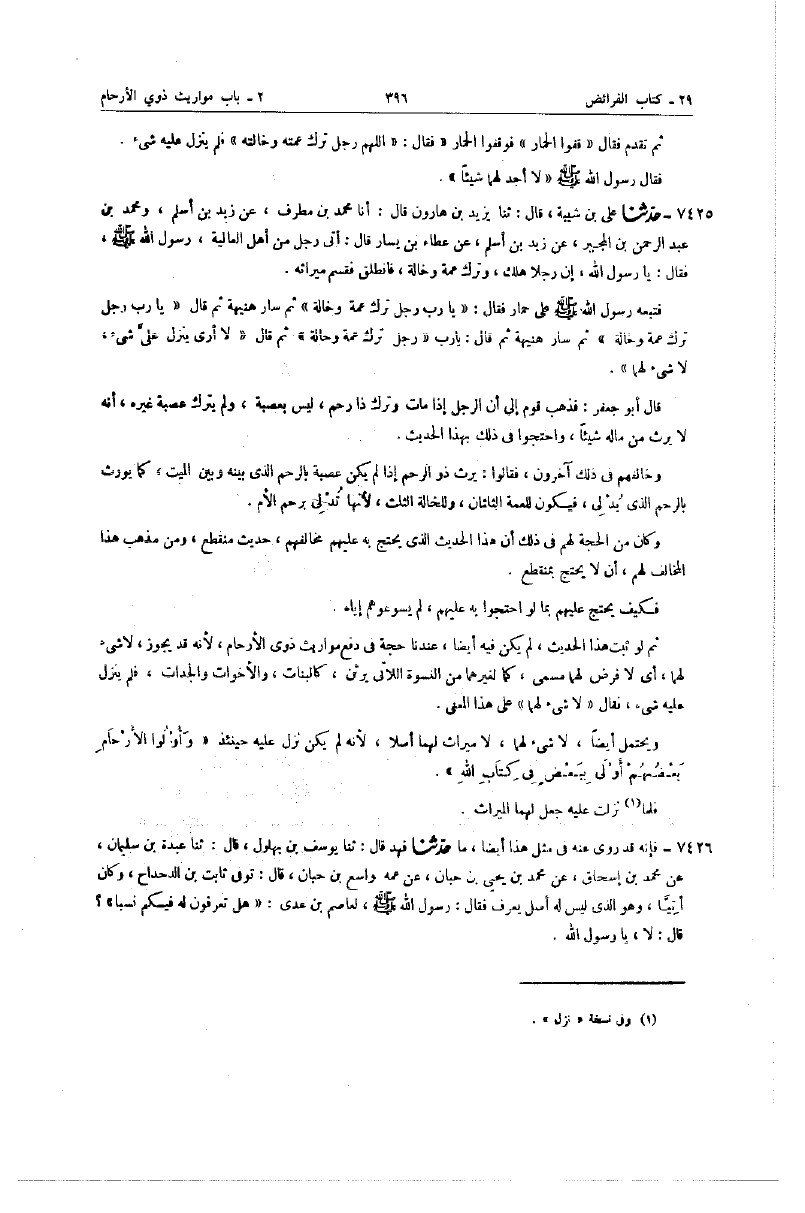 ٢٩ - كتاب الفرائض ٣٩٦ ٢ - باب مواريث ذوي الأرحام
ثم تقدم فقال « قفوا الحمار » فوقفوا الحمار « فقال : « اللهم رجل ترك عمته وخالته » فلم ينزل عليه شىء .
فقال رسول الله ﷺ « لا أجد لهما شيئاً » .
٧٤٢٥ - حدثنا على بن شيبة ، قال : ثنا يزيد بن هارون قال : أنا محمد بن مطرف ، عن زيد بن أسلم ، ومحمد بن
عبد الرحمن بن المجبر ، عن زيد بن أسلم ، عن عطاء بن يسار قال : أتى رجل من أهل العالية ، رسول الله ﷺ ،
فقال : يا رسول الله ، إن رجلا هلك ، وترك عمة وخالة ، فانطلق فقسم ميراثه .
فتبعه رسول الله ﷺ على حمار فقال : « يا رب رجل ترك عمة وخالة » ثم سار هنيهة ثم قال « يا رب رجل
ترك عمة وخالة » ثم سار هنيهة ثم قال : يارب « رجل ترك عمة وخالة » ثم قال « لا أرى ينزل علىَّ شىء ،
لا شىء لهما » .
قال أبو جعفر : فذهب قوم إلى أن الرجل إذا مات وترك ذا رحم ، ليس بعصبة ، ولم يترك عصبة غيره ، أنه
لا يرث من ماله شيئاً ، واحتجوا فى ذلك بهذا الحديث .
وخالفهم فى ذلك آخرون ، فقالوا : يرث ذو الرحم إذا لم يكن عصبة بالرحم الذى بينه وبين الميت ، كما يورث
بالرحم الذى يُدْلى ، فيكون للعمة الثلثان ، وللخالة الثلث ، لأنها تُدْلِى برحم الأم .
وكان من الحجة لهم فى ذلك أن هذا الحديث الذى يحتج به عليهم مخالفهم ، حديث منقطع ، ومن مذهب هذا
المخالف لهم ، أن لا يحتج بمنقطع .
فكيف يحتج عليهم بما لو احتجوا به عليهم ، لم يسوغوهم إياه .
ثم لو ثبت هذا الحديث ، لم يكن فيه أيضا ، عندنا حجة فى دفع مواريث ذوى الأرحام ، لأنه قد يجوز ، لا شىء
لهما ، أى لا فرض لهما مسمى ، كما لغيرهما من النسوة اللاتى يرثن ، كالبنات ، والأخوات والجدات ، فلم ينزل
عليه شىء ، فقال « لا شىء لهما » على هذا المعنى .
ويحتمل أيضاً ، لا شىء لهما ، لا ميراث لهما أصلا ، لأنه لم يكن نزل عليه حينئذ « وَأُولُوا الأَرْحَامِ
بَعْضُهُمْ أَوْلَى بِبَعْضٍ فِى كِتَابِ اللهِ » .
فلما(١) نزلت عليه جعل لهما الميراث .
٧٤٢٦ - فإنه قد روى عنه فى مثل هذا أيضا ، ما حدثنا فهد قال : ثنا يوسف بن بهلول ، قال : ثنا عبدة بن سليمان ،
عن محمد بن إسحاق ، عن محمد بن يحيى بن حبان ، عن عمه واسع بن حبان ، قال : توفى ثابت بن الدحداح ، وكان
أتِيًّا ، وهو الذى ليس له أصل يعرف فقال : رسول الله ﷺ ، لعاصم بن عدى : « هل تعرفون له فيكم نسبا » ؟
قال : لا ، يا رسول الله .
(١) وفى نسخة « نزل » .